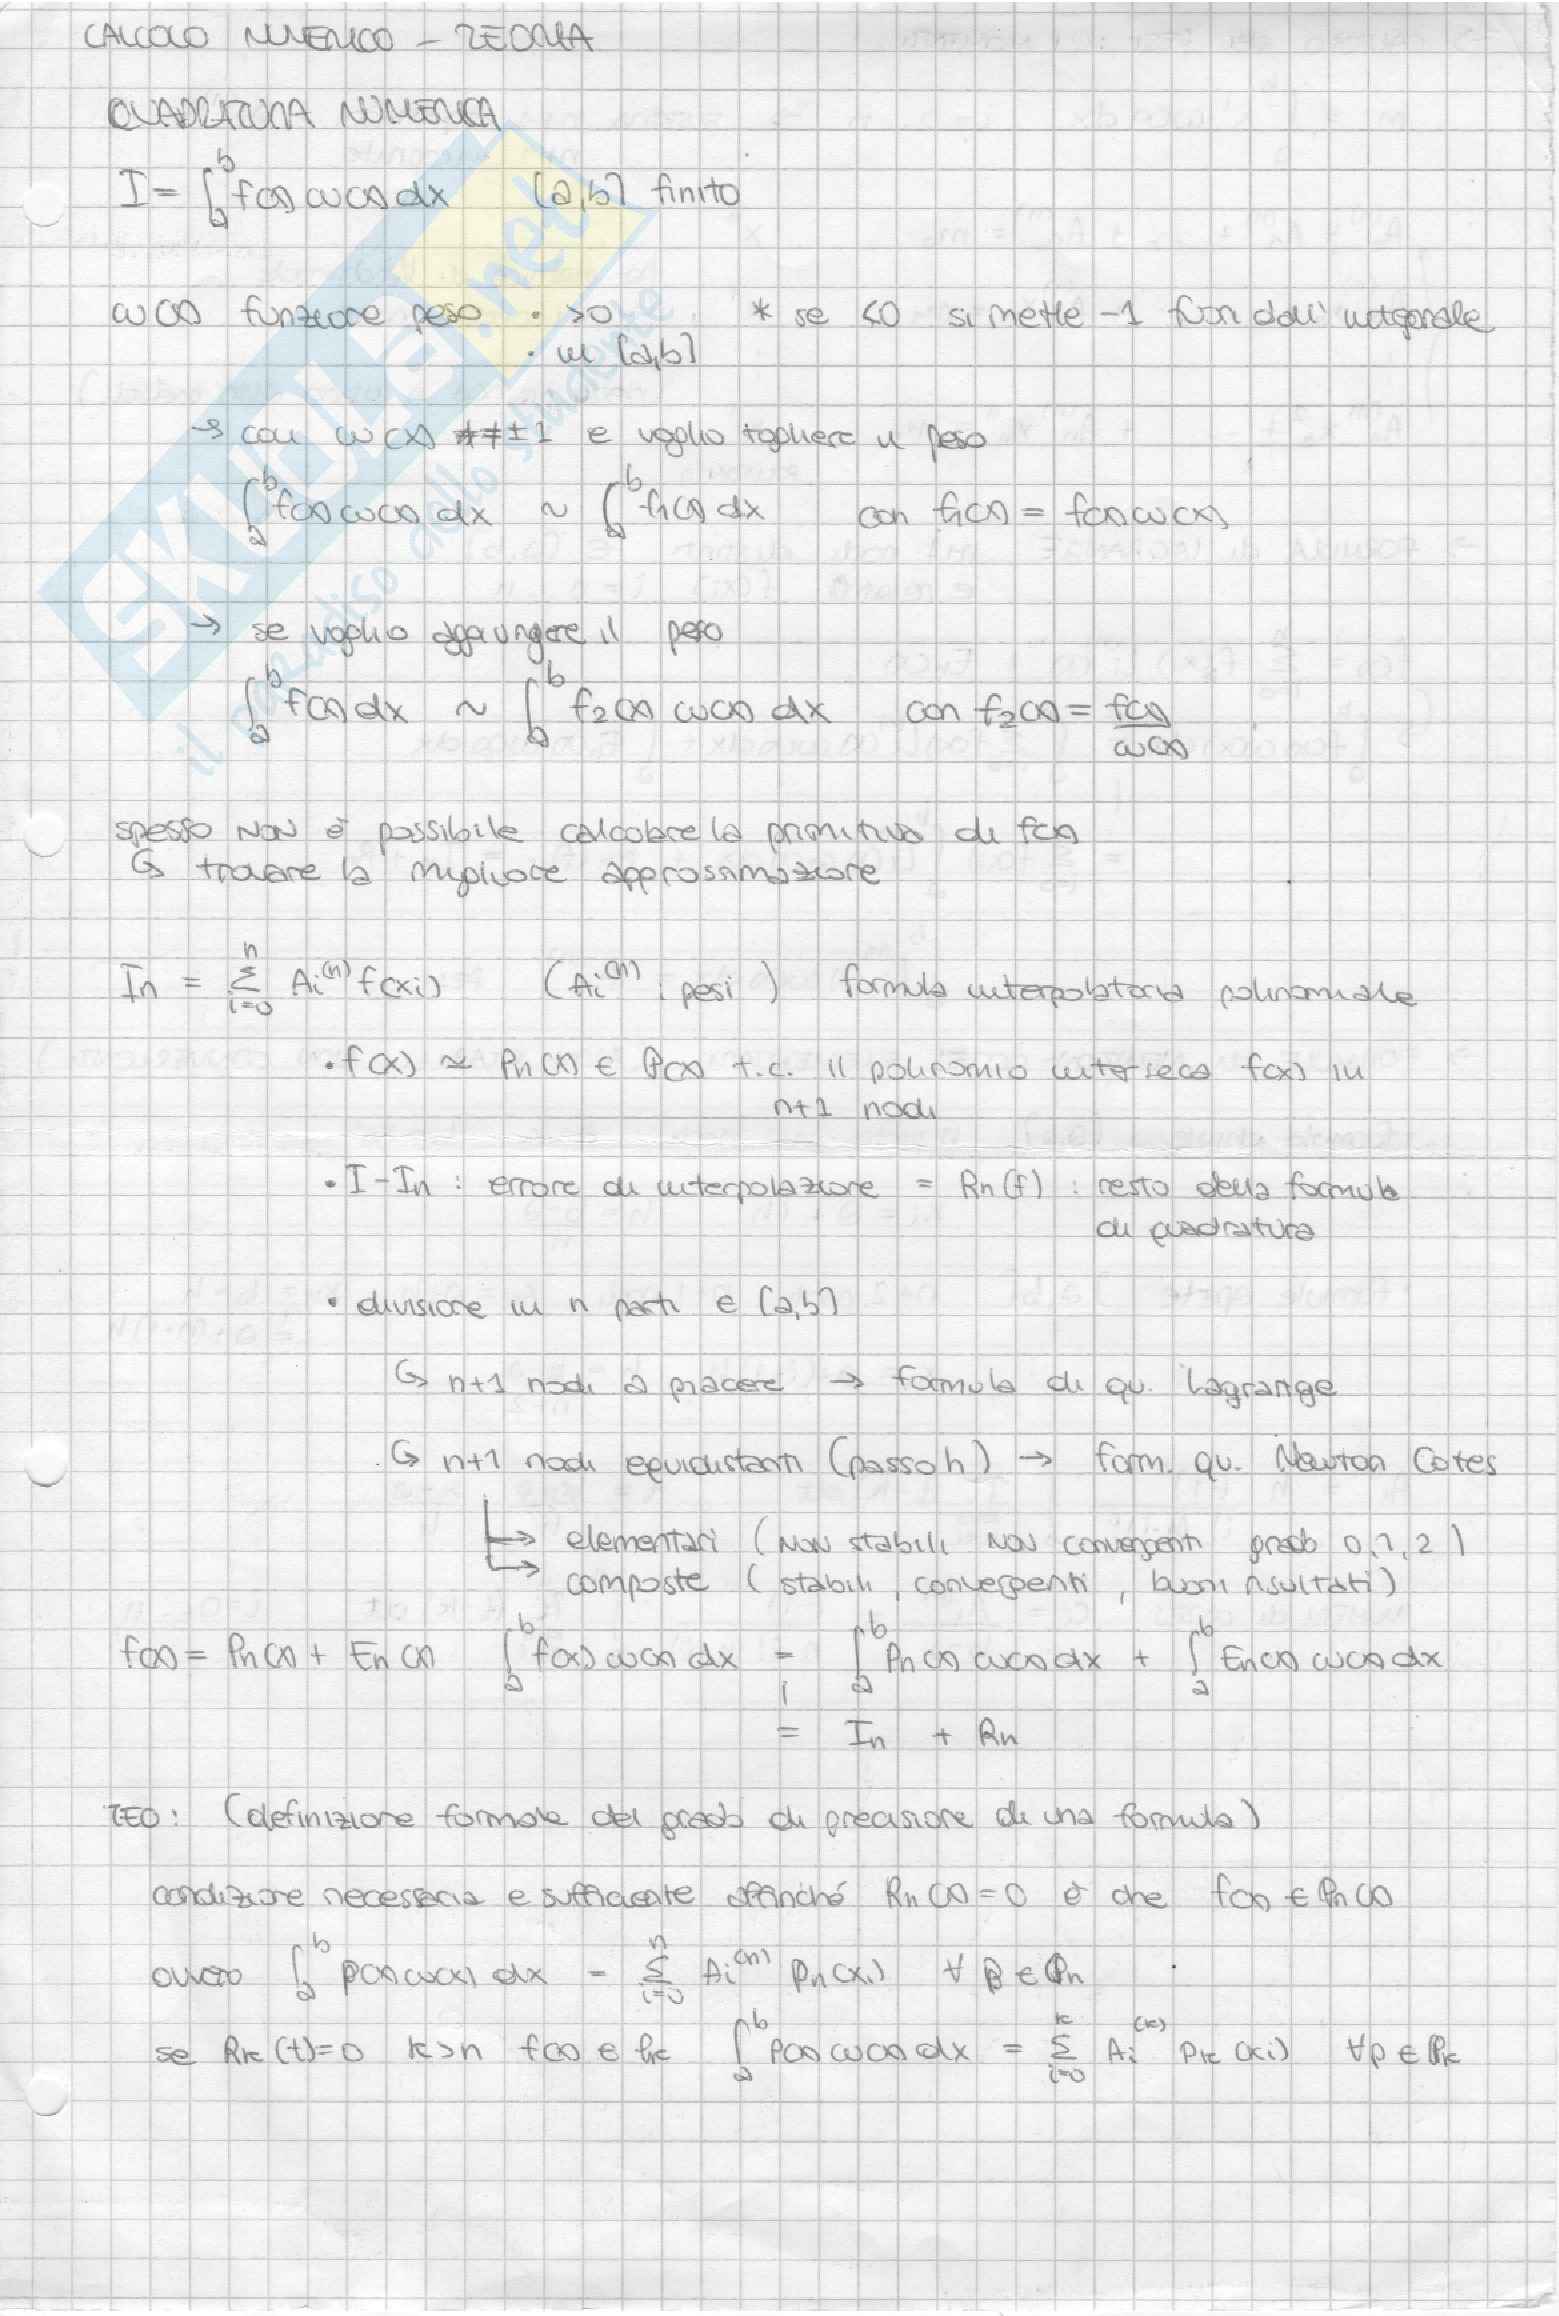 CALCOLO NUMERICO - TEORIA
QUADRATURA NUMERICA
I = ∫_a^b f(x) ω(x) dx [a,b] finito
ω(x) funzione peso • >0 * se <0 si mette -1 fuori dall'integrale
• in [a,b]
→ con ω(x) ≠ ±1 e voglio togliere il peso
∫_a^b f(x) ω(x) dx ~ ∫_a^b f1(x) dx con f1(x) = f(x) ω(x)
→ se voglio aggiungere il peso
∫_a^b f(x) dx ~ ∫_a^b f2(x) ω(x) dx con f2(x) = f(x)/ω(x)
spesso NON è possibile calcolare la primitiva di f(x)
↳ trovare la migliore approssimazione
In = Σ_{i=0}^n Ai^(n) f(xi) (Ai^(n) : pesi) formula interpolatoria polinomiale
• f(x) ≃ Pn(x) ∈ P(x) t.c. il polinomio interseca f(x) in
n+1 nodi
• I - In : errore di interpolazione = Rn(f) : resto della formula
di quadratura
• divisione in n parti ∈ [a,b]
↳ n+1 nodi a piacere → formula di qu. Lagrange
↳ n+1 nodi equidistanti (passo h) → form. qu. Newton Cotes
→ elementari (NON stabili NON convergenti grado 0,1,2)
→ composte (stabili, convergenti, buoni risultati)
f(x) = Pn(x) + En(x) ∫_a^b f(x) ω(x) dx = ∫_a^b Pn(x) ω(x) dx + ∫_a^b En(x) ω(x) dx
= In + Rn
TEO: (definizione formale del grado di precisione di una formula)
condizione necessaria e sufficiente affinché Rn(x) = 0 è che f(x) ∈ Pn(x)
ovvero ∫_a^b p(x) ω(x) dx = Σ_{i=0}^n Ai^(n) pn(xi) ∀ p ∈ Pn
se Rk(t)=0 k>n f(x) ∈ Pk ∫_a^b p(x) ω(x) dx = Σ_{i=0}^k Ai^(k) pk(xi) ∀p ∈ Pk
SKUOLA.net
il paradiso dello studente